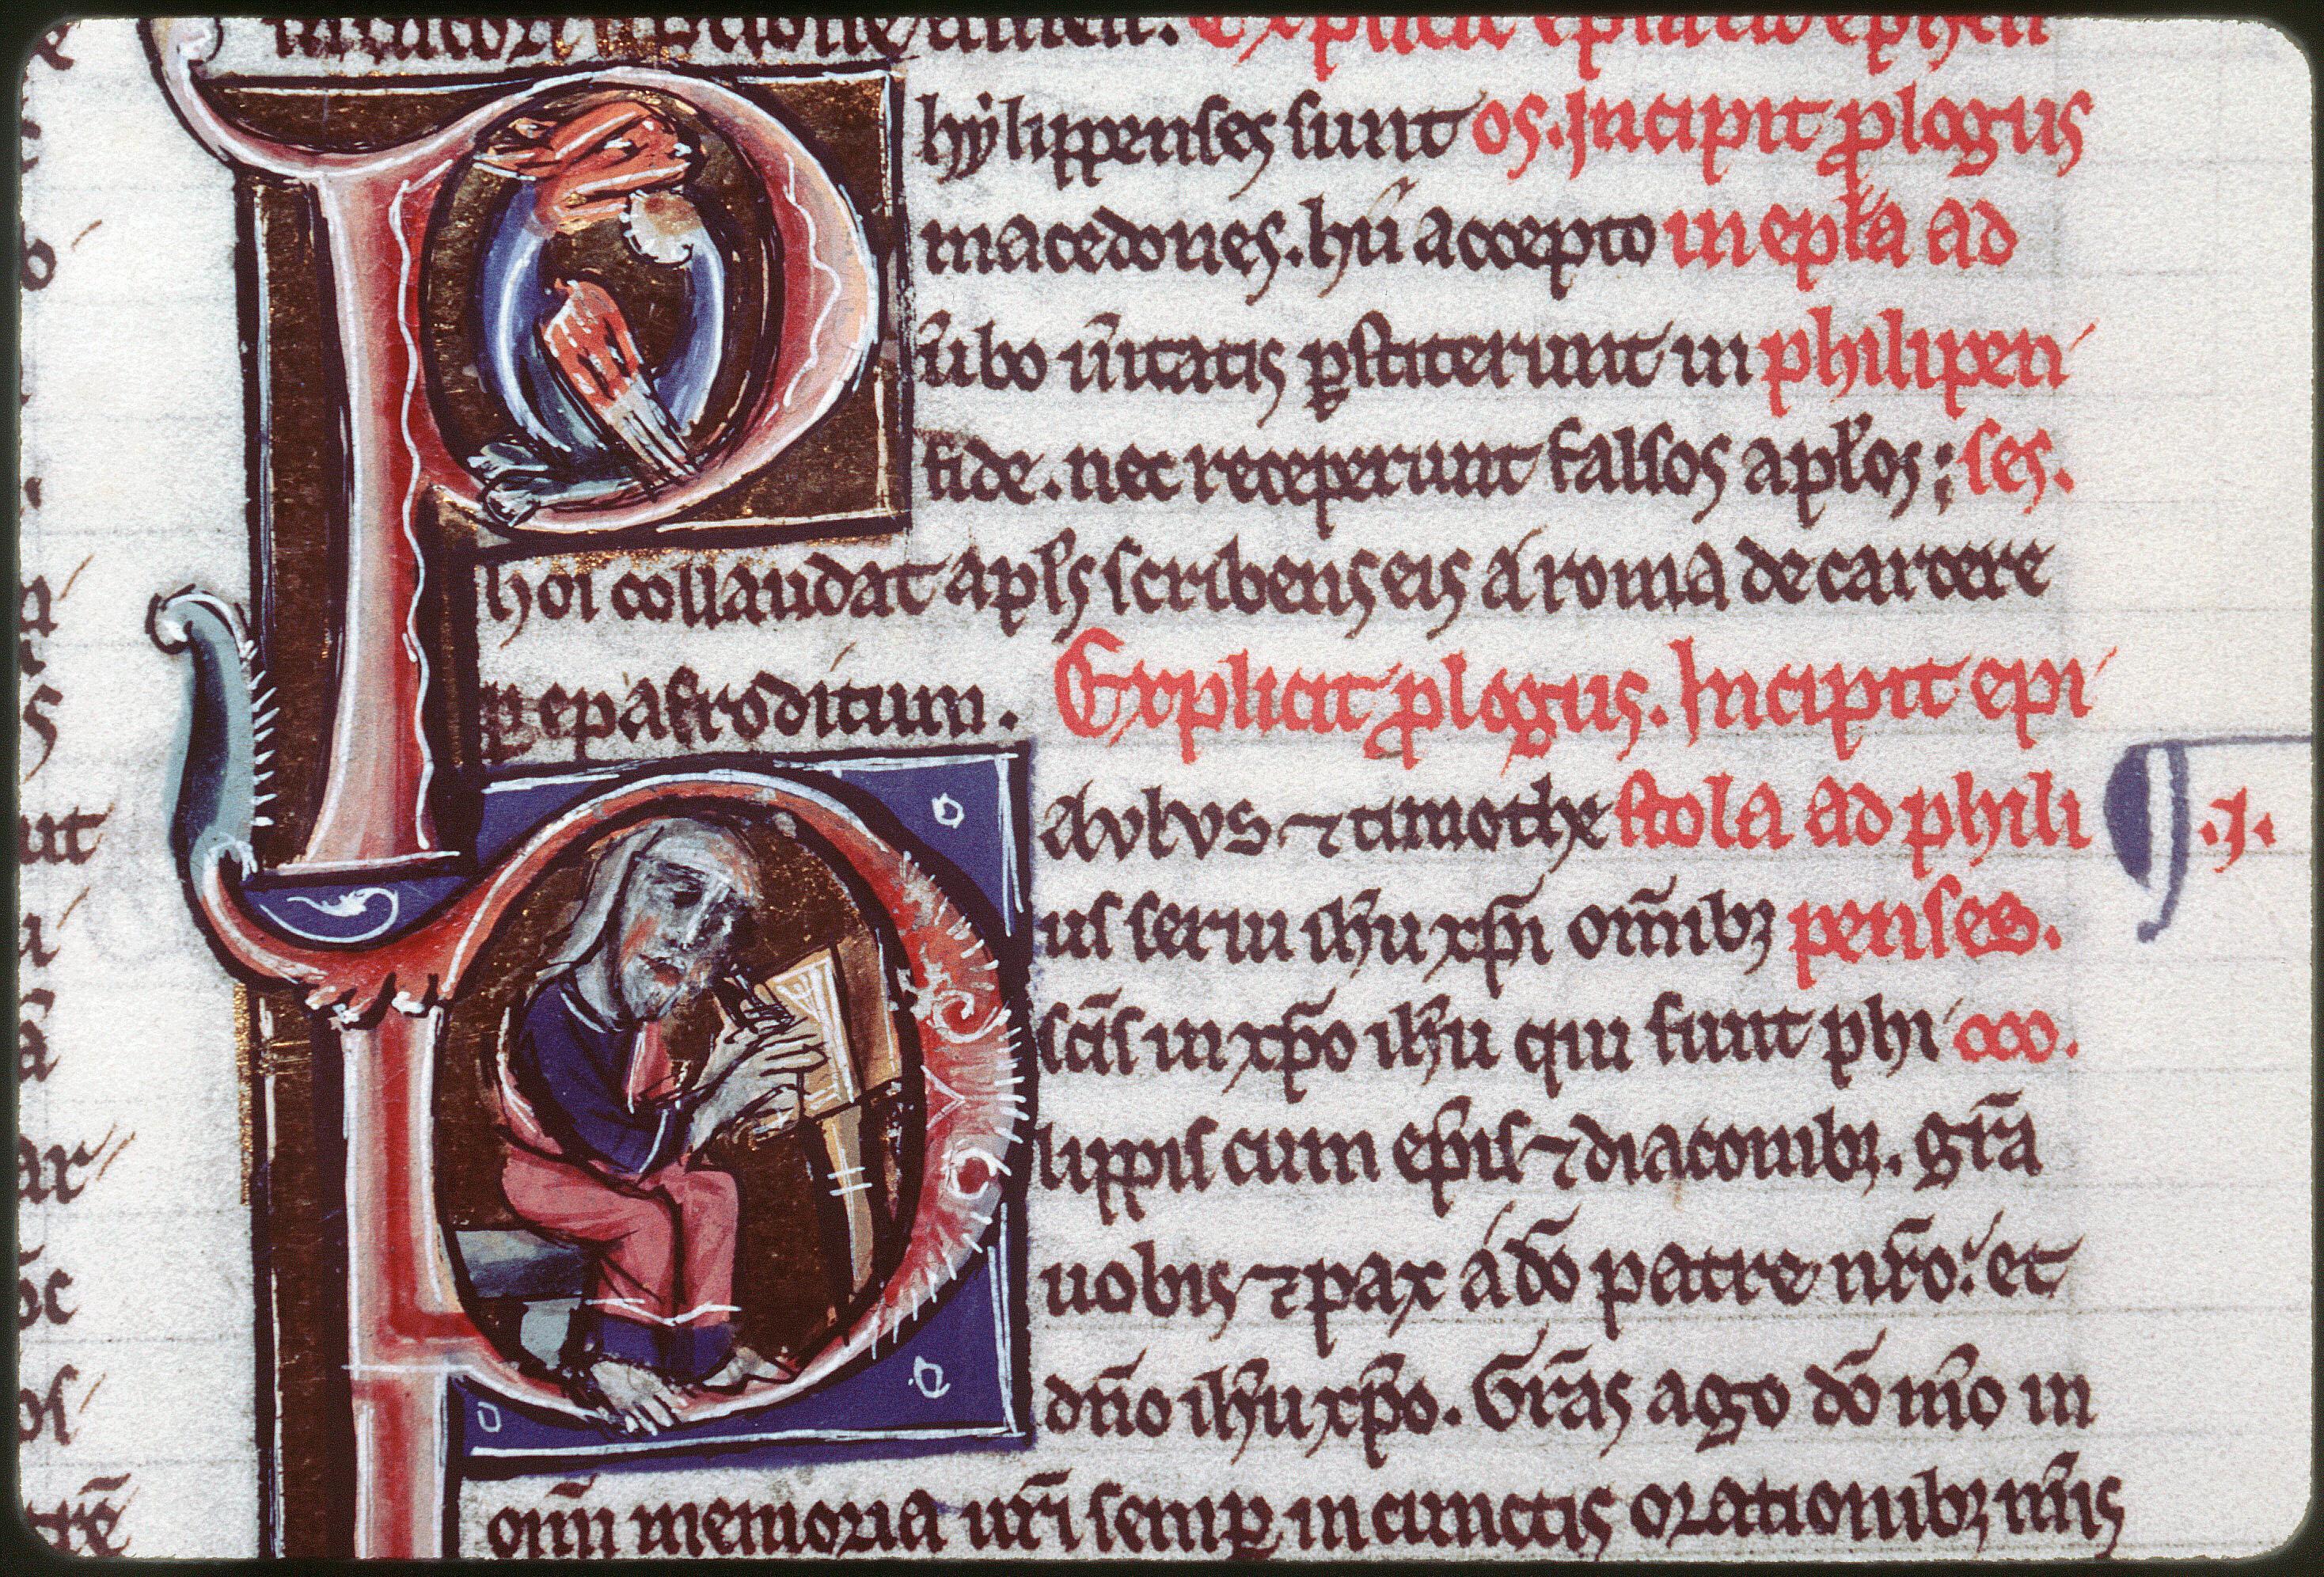 in incorruptione amen. Explicit epła ad ephesi
hẏlippenses sunt os. Incipit ꝓlogus
macedones. hii accepto in epła ad
u̾bo u̾itatis ꝑstiterunt in philipen
fide. nec receperunt falsos apłos; ses.
hoi collaudat apłs scribens eis a roma de carcere
ꝑ epafroditum. Explicit ꝓlogus. Incipit epi
aulus ⁊ timothe stola ad phili ¶ .I.
us serui ih̅u xp̅i om̅ibꝫ penses.
sc̅is in xp̅o ih̅u qui sunt phi
lippis cum ep̅is ⁊ diaconibꝫ. gr̅a
uobis ⁊ pax a do̅ patre nr̅o: et
dn̅o ih̅u xp̅o. Gr̅as ago do̅ m̅o in
om̅i memoria ur̅i semꝑ in cunctis orationibꝫ m̅is